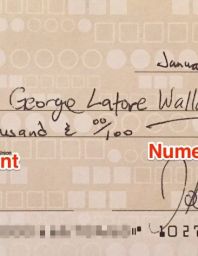 Janua
George Latore Walla
usand & 00/100
nt
Nume
1027